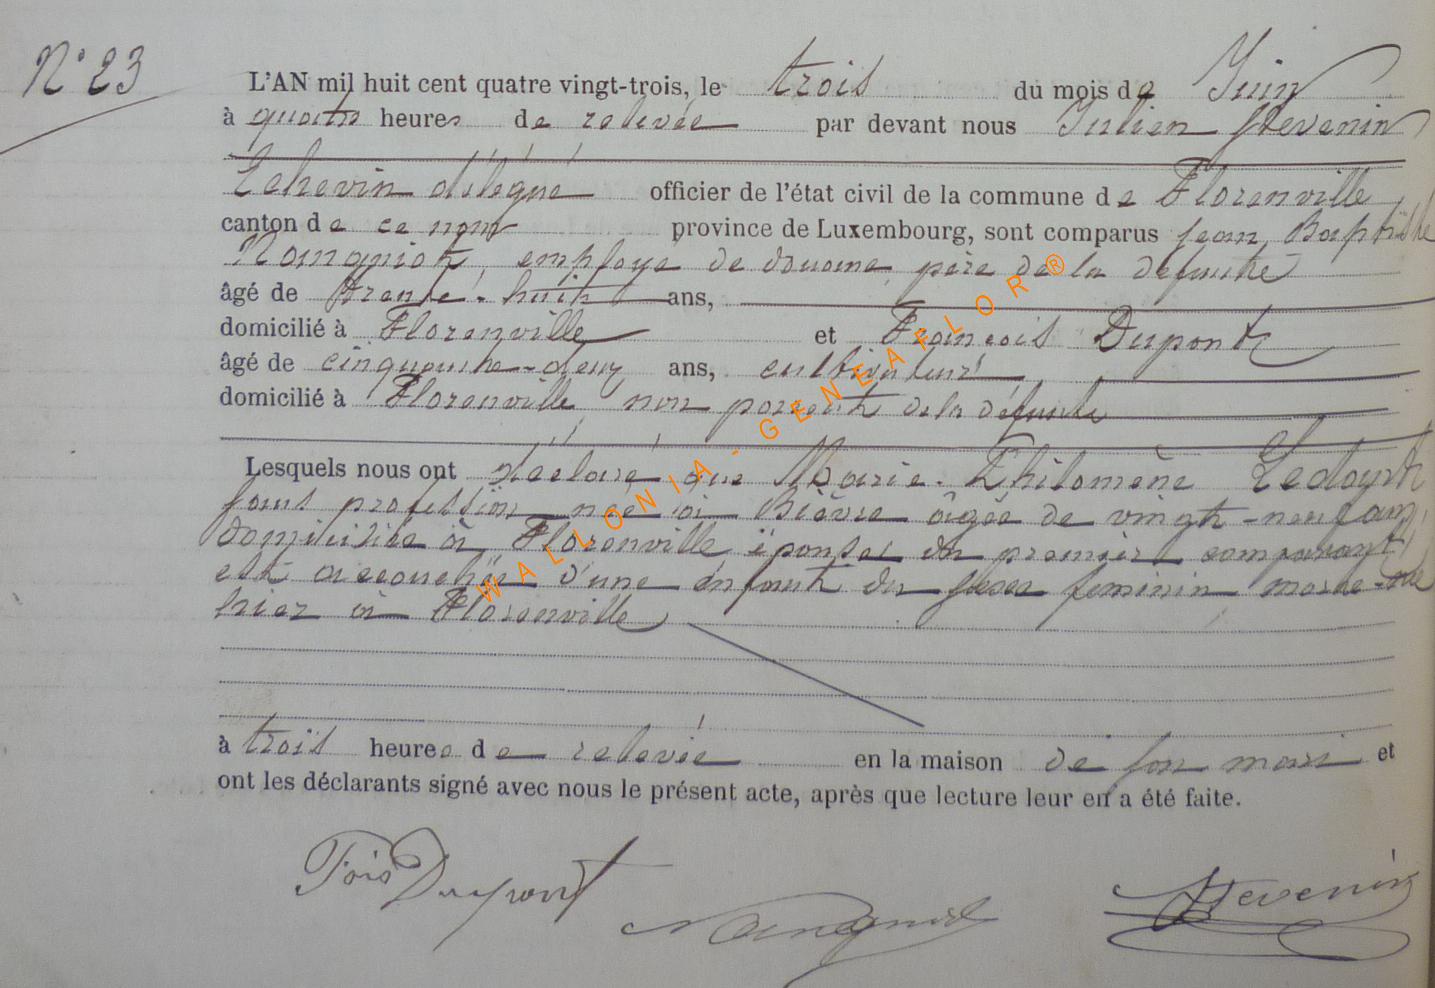 N° 23
L'AN mil huit cent quatre vingt-trois, le trois du mois de Juin
à quatre heures de relevée par devant nous Julien Stevenin
Echevin délégué officier de l'état civil de la commune de Florenville
canton de ce nom province de Luxembourg, sont comparus Jean Baptiste
employé de douane, père de la défunte
âgé de trente-huit ans,
domicilié à Florenville et François Dupont
âgé de cinquante-deux ans, cultivateur
domicilié à Florenville non parent de la défunte
Lesquels nous ont déclaré que Marie-Philomène
sans profession née à Bièvre âgée de vingt-neuf ans
domiciliée à Florenville épouse du premier comparant
est accouchée d'une enfant du sexe féminin morte-née
hier à Florenville
à trois heures de relevée en la maison de son mari et
ont les déclarants signé avec nous le présent acte, après que lecture leur en a été faite.
Fois Dupont
Stevenin
WALLONIA - GENEAFLOR ®